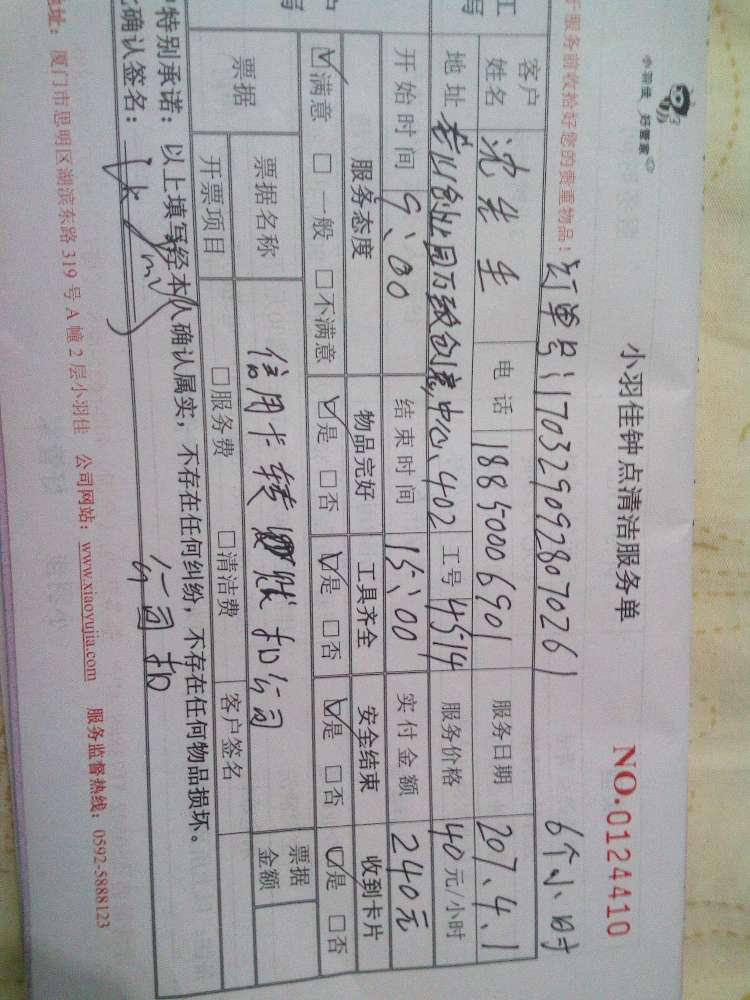 小羽佳 好管家
小羽佳钟点清洁服务单
NO.0124410
于服务前收拾好您的贵重物品!
订单号:1703290928070261 6个小时
客户姓名 沈先生 电话 18850006901 服务日期 207.4.1
地址 创业园万致创意中心402 工号 4514 服务价格 40元/小时
开始时间 9:00 结束时间 15:00 实付金额 240元
服务态度 物品完好 工具齐全 安全结束 收到卡片
☑满意 □一般 □不满意 ☑是 □否 ☑是 □否 ☑是 □否 ☑是 □否
票据 票据名称 信用卡转账扣公司 票据金额
开票项目 □服务费 □清洁费 客户签名
特别承诺:以上填写经本人确认属实,不存在任何纠纷,不存在任何物品损坏。
确认签名: 公司扣
地址:厦门市思明区湖滨东路319号A幢2层小羽佳 公司网站:www.xiaoyujia.com 服务监督热线:0592-5888123